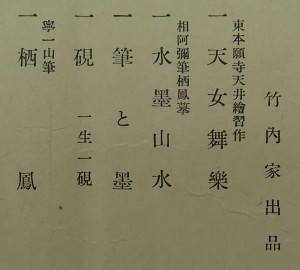 竹內家出品
東本願寺天井繪習作
一 天女舞樂
相阿彌筆栖鳳摹
一 水墨山水
一 筆と墨
一 硯 一生一硯
寧一山筆
一 栖鳳